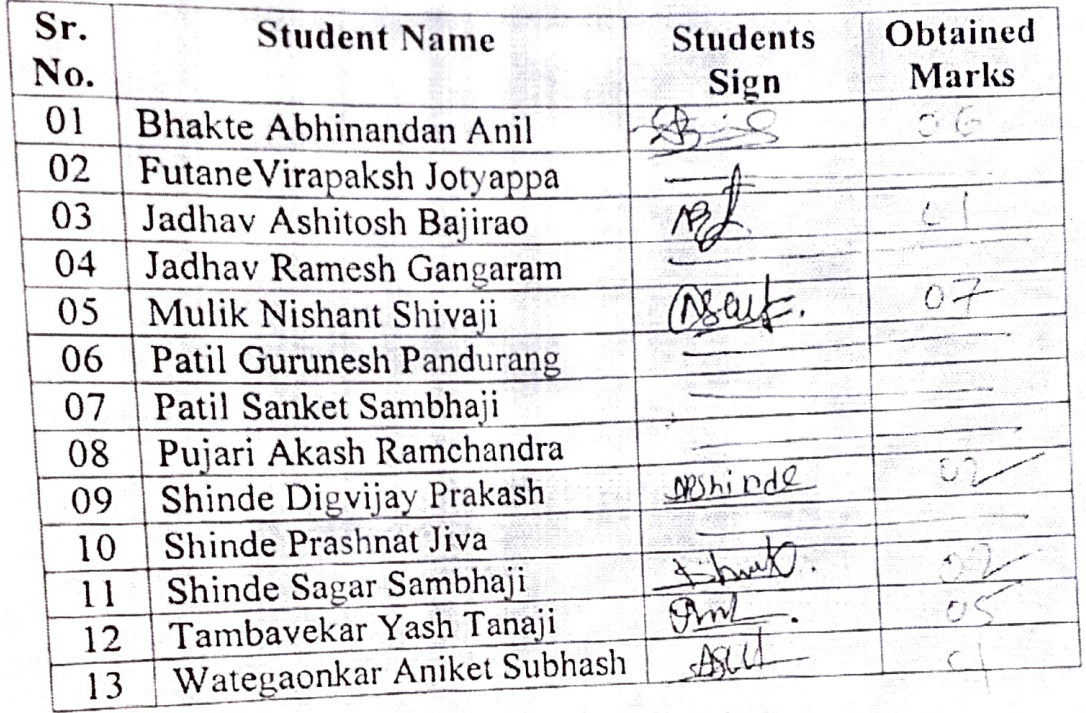 Sr. No. Student Name Students Sign Obtained Marks
01 Bhakte Abhinandan Anil 06
02 FutaneVirapaksh Jotyappa —
03 Jadhav Ashitosh Bajirao 01
04 Jadhav Ramesh Gangaram —
05 Mulik Nishant Shivaji 07
06 Patil Gurunesh Pandurang —
07 Patil Sanket Sambhaji —
08 Pujari Akash Ramchandra —
09 Shinde Digvijay Prakash DPShinde 02
10 Shinde Prashnat Jiva —
11 Shinde Sagar Sambhaji 02
12 Tambavekar Yash Tanaji 05
13 Wategaonkar Aniket Subhash